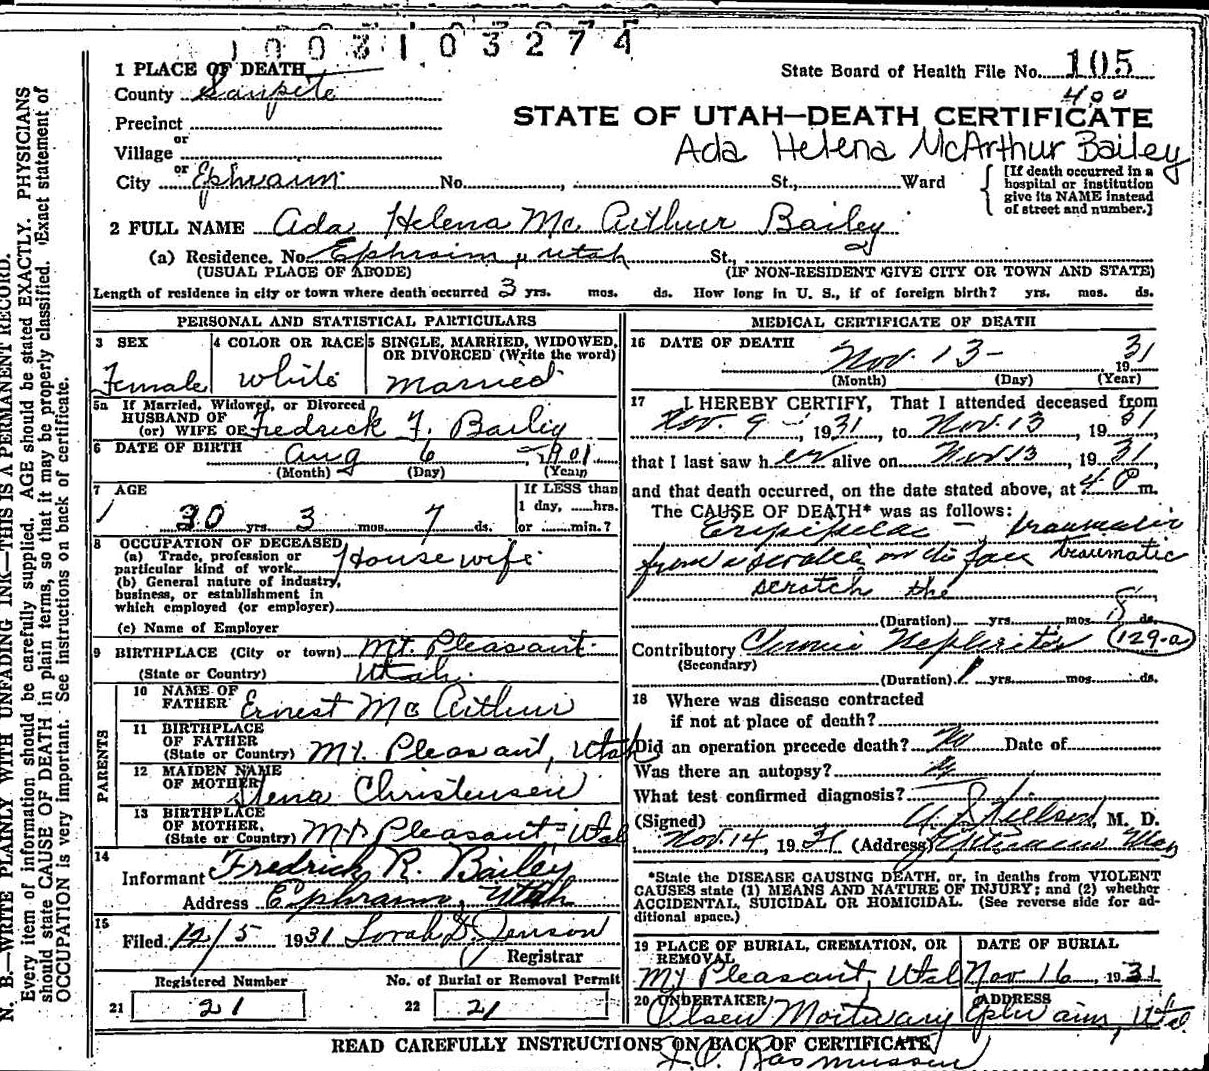 1003103274
1 PLACE OF DEATH
State Board of Health File No. 105
County Sanpete
400
STATE OF UTAH—DEATH CERTIFICATE
Precinct
or
Village
Ada Helena McArthur Bailey
or
City Ephraim No. , St., Ward
[If death occurred in a
hospital or institution
give its NAME instead
of street and number.]
2 FULL NAME Ada Helena Mc Arthur Bailey
(a) Residence. No. Ephraim, Utah St.,
(USUAL PLACE OF ABODE) (IF NON-RESIDENT GIVE CITY OR TOWN AND STATE)
Length of residence in city or town where death occurred 3 yrs. mos. ds. How long in U. S., if of foreign birth? yrs. mos. ds.
PERSONAL AND STATISTICAL PARTICULARS
3 SEX
Female
4 COLOR OR RACE
White
5 SINGLE, MARRIED, WIDOWED,
OR DIVORCED (Write the word)
Married
5a If Married, Widowed, or Divorced
HUSBAND OF
(or) WIFE OF Fedrick F. Bailey
6 DATE OF BIRTH Aug 6, 1901
(Month) (Day) (Year)
7 AGE
30 yrs. 3 mos. 7 ds.
If LESS than
1 day, hrs.
or min.?
8 OCCUPATION OF DECEASED
(a) Trade, profession or
particular kind of work Housewife
(b) General nature of industry,
business, or establishment in
which employed (or employer)
(c) Name of Employer
9 BIRTHPLACE (City or town) Mt. Pleasant.
(State or Country) Utah.
PARENTS
10 NAME OF
FATHER Ernest Mc Arthur
11 BIRTHPLACE
OF FATHER
(State or Country) Mt. Pleasant, Utah
12 MAIDEN NAME
OF MOTHER Stena Christensen
13 BIRTHPLACE
OF MOTHER,
(State or Country) Mt Pleasant-Utah
14
Informant Fredrick R. Bailey
Address Ephraim, Utah
15
Filed 12/5 1931 Jenson
Registrar
Registered Number No. of Burial or Removal Permit
21 21 22 21
MEDICAL CERTIFICATE OF DEATH
16 DATE OF DEATH
Nov. 13- 1931
(Month) (Day) (Year)
17 I HEREBY CERTIFY, That I attended deceased from
Nov. 9 -, 1931, to Nov. 13, 1931
that I last saw her alive on Nov. 13, 1931,
and that death occurred, on the date stated above, at 4 P m.
The CAUSE OF DEATH* was as follows:
Erysipelas - traumatic
from a scratch on the face traumatic
scratch the
(Duration) yrs. mos. 8 ds.
Contributory Chronic Nephritis (129-a)
(Secondary)
(Duration) 1 yrs. mos. ds.
18 Where was disease contracted
if not at place of death?
Did an operation precede death? No Date of
Was there an autopsy? No
What test confirmed diagnosis?
(Signed) , M. D.
Nov. 14, 1931 (Address) Ephraim Utah
*State the DISEASE CAUSING DEATH, or, in deaths from VIOLENT
CAUSES state (1) MEANS AND NATURE OF INJURY; and (2) whether
ACCIDENTAL, SUICIDAL OR HOMICIDAL. (See reverse side for ad-
ditional space.)
19 PLACE OF BURIAL, CREMATION, OR
REMOVAL
Mt Pleasant, Utah
DATE OF BURIAL
Nov 16, 1931
20 UNDERTAKER
Olsen Mortuary
ADDRESS
Ephraim, Utah
READ CAREFULLY INSTRUCTIONS ON BACK OF CERTIFICATE
Rasmussen
N. B.—WRITE PLAINLY WITH UNFADING INK—THIS IS A PERMANENT RECORD.
Every item of information should be carefully supplied. AGE should be stated EXACTLY. PHYSICIANS
should state CAUSE OF DEATH in plain terms, so that it may be properly classified. Exact statement of
OCCUPATION is very important. See instructions on back of certificate.